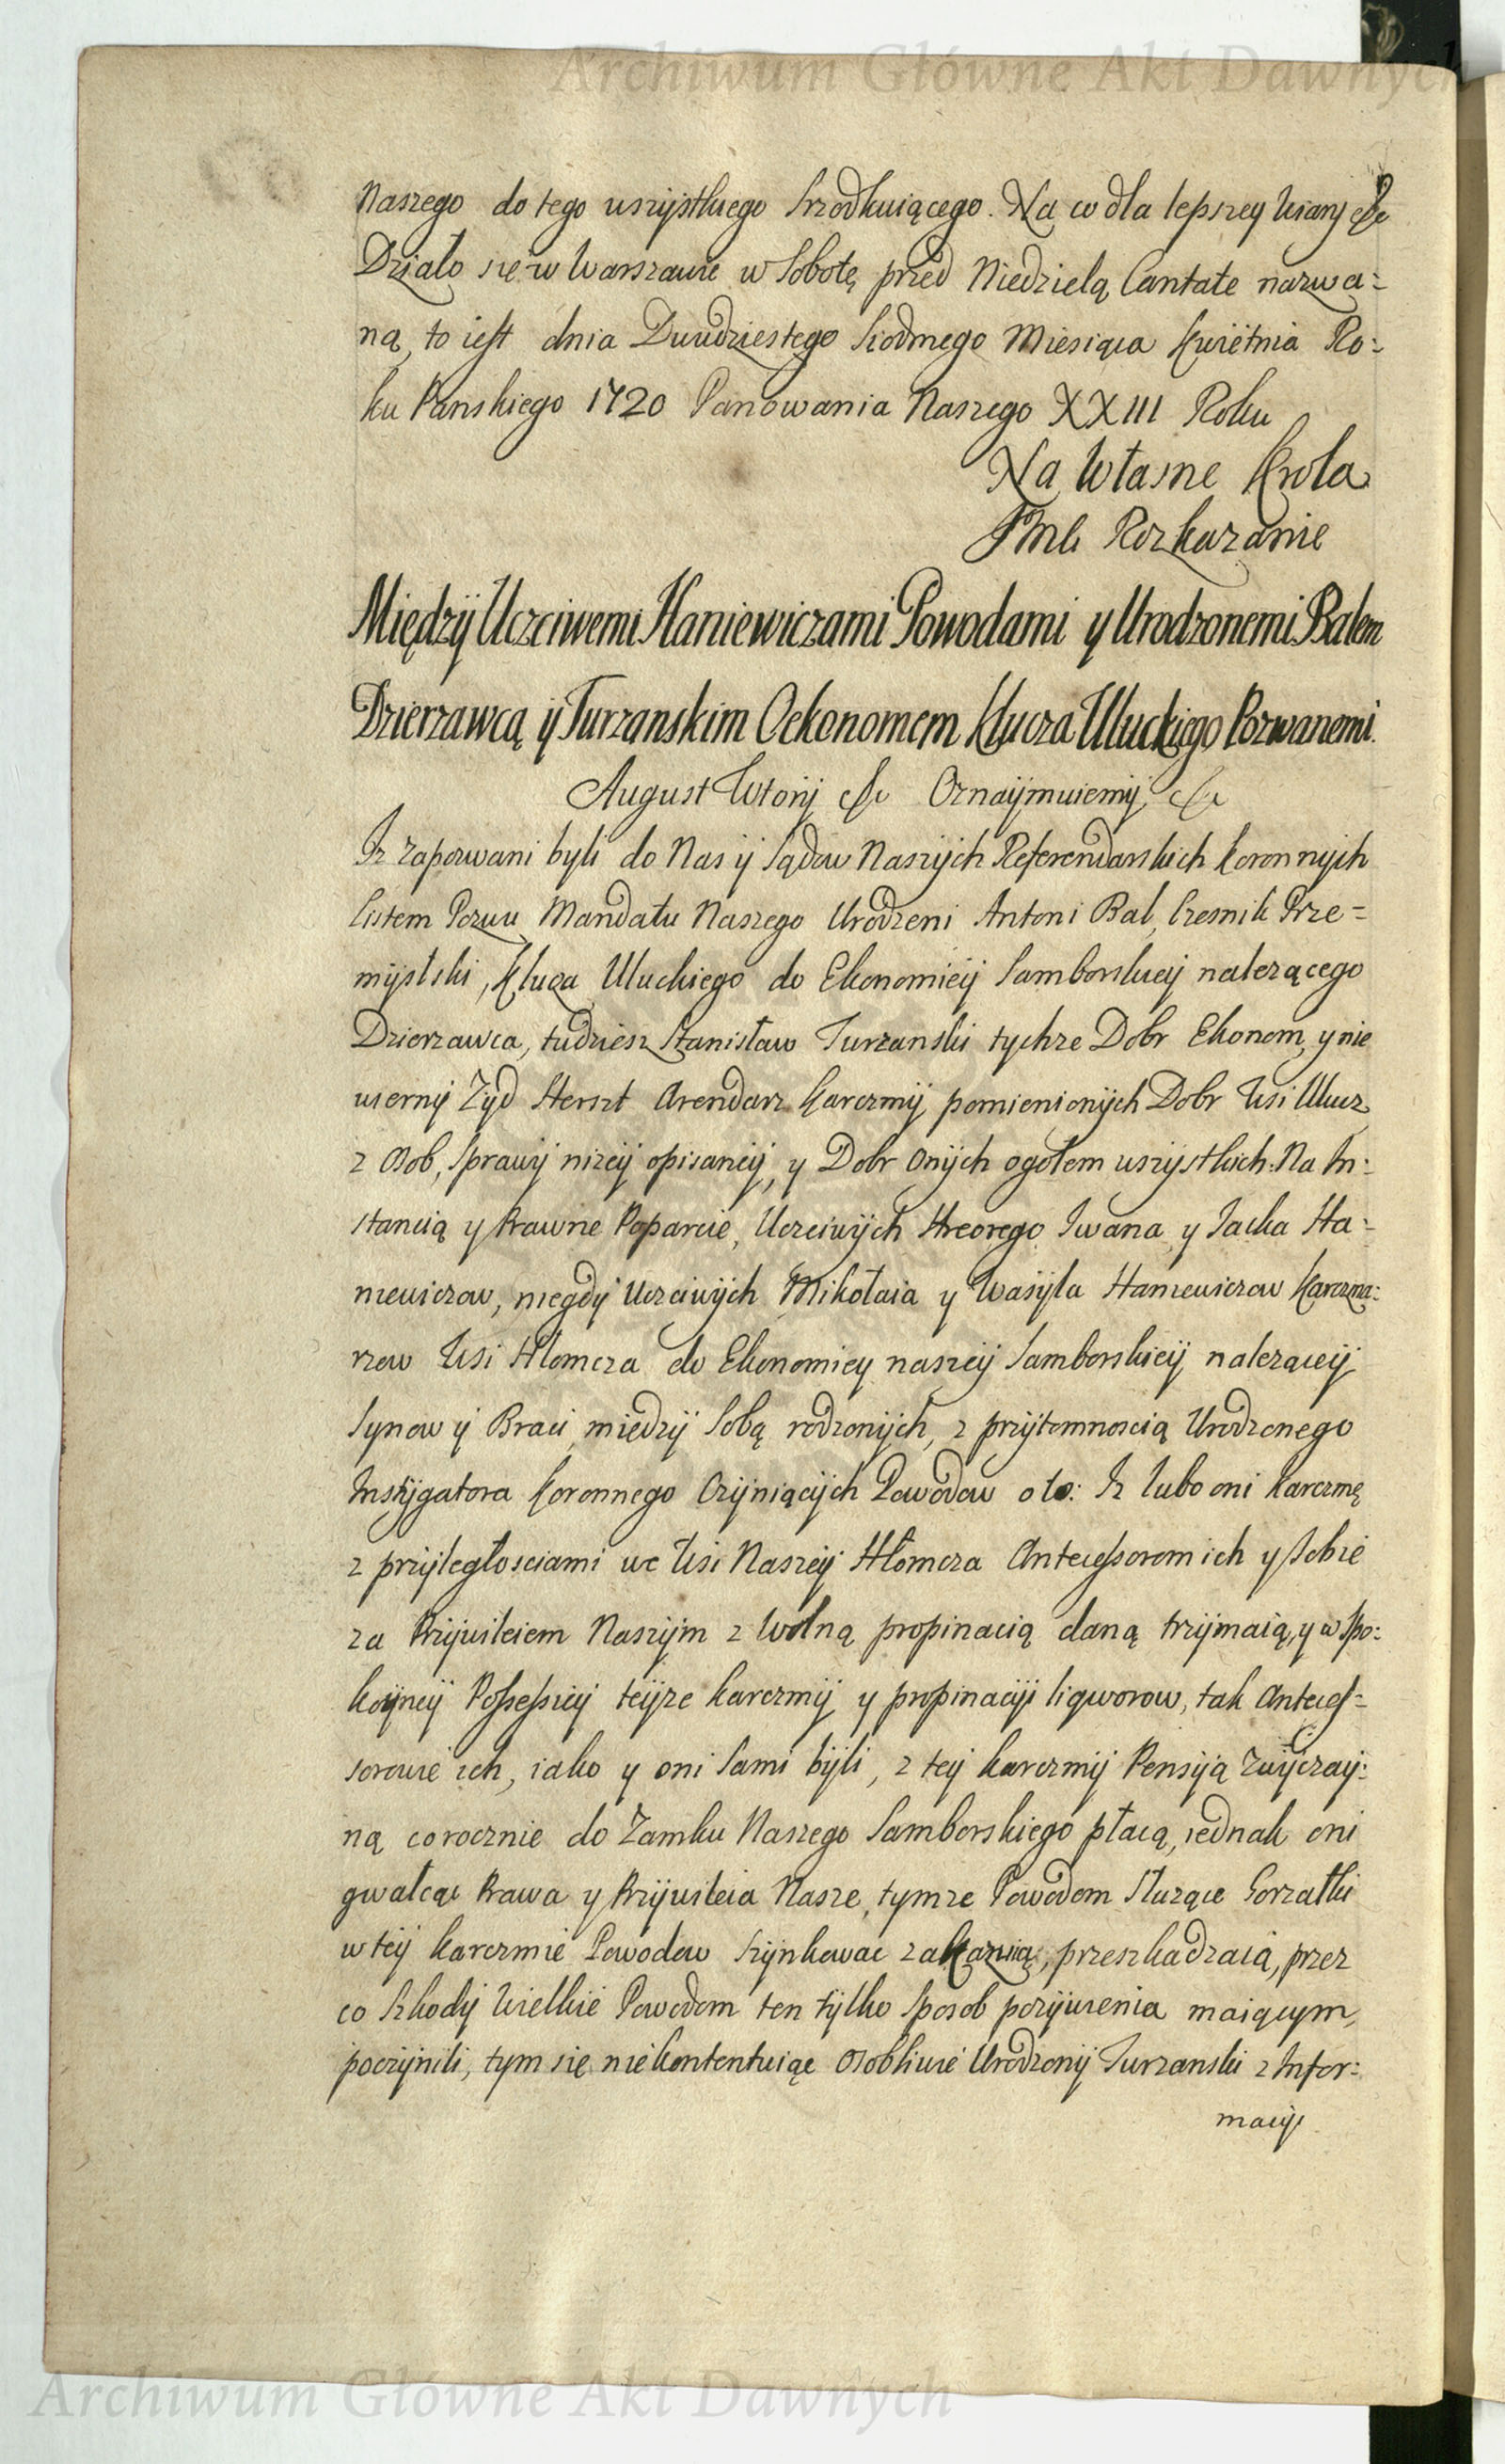 Archiwum Główne Akt Dawnych
Naszego do tego wszystkiego srzodkuiącego. Na co dla lepszey Wiary &c
Działo się w Warszawie w Sobotę przed Niedzielą Cantate nazwa=
ną, to iest dnia Dwudziestego Siodmego Miesiąca Kwietnia Ro=
ku Panskiego 1720 Panowania Naszego XXIII Roku
Na Własne Krola
JMCi Rozkazanie
Między Uczciwemi Haniewiczami Powodami y Urodzonemi Balem
Dzierzawcą y Turzanskim Oekonomem Klucza Uluckiego Pozwanemi.
August Wtory &c Oznaymuiemy &c
Iz zapozwani byli do Nas y Sądow Naszych Referendarskich Koronnych
listem Pozwu Mandatu Naszego Urodzeni Antoni Bal, Czesnik Prze=
myslski, Klucza Uluckiego do Ekonomiey Samborskiey nalezącego
Dzierzawca, tudziesz Stanisław Turzanski tychze Dobr Ekonom, y nie
wierny Zyd Herszt Arendarz Karczmy pomienionych Dobr Wsi Ulucz
z Osob, Sprawy nizey opisaney, y Dobr onych ogołem wszystkich: Na In:
stancią y Prawne Poparcie, Uczciwych Hreorego Iwana y Jacka Ha:
niewiczow, niegdy Uczciwych Mikołaia y Wasyla Haniewiczow Karczma:
rzow Wsi Hłomcza do Ekonomiey naszey Samborskiey nalezącey
Synow y Braci między Sobą rodzonych, z przytomnoscią Urodzonego
Instygatora Koronnego Czyniących Powodow oto: Iz lubo oni Karczmę
z przyległosciami we Wsi Naszey Hłomcza Antecessorom ich y Sobie
za Przywileiem Naszym z Wolną propinacią daną trzymaią, y w Spo:
koyney Possessiey teyze Karczmy y propinacyi liqworow, tak Anteces=
sorowie ich, iako y oni Sami byli, z tey karczmy Pensyą Zwyczay:
ną corocznie do Zamku Naszego Samborskiego płacą, iednak oni
gwałcąc Prawa y Przywileia Nasze, tymze Powodom Służące Gorzałki
w tey karczmie Powodow Szynkowac zakazuią, przeszkadzaią, przez
co Szkody Wielkie Powodom ten tylko Sposob pozywienia maiącym,
poczynili, tym się niekontentuiąc osobliwie Urodzony Turzanski z Infor:
macyi
Archiwum Główne Akt Dawnych